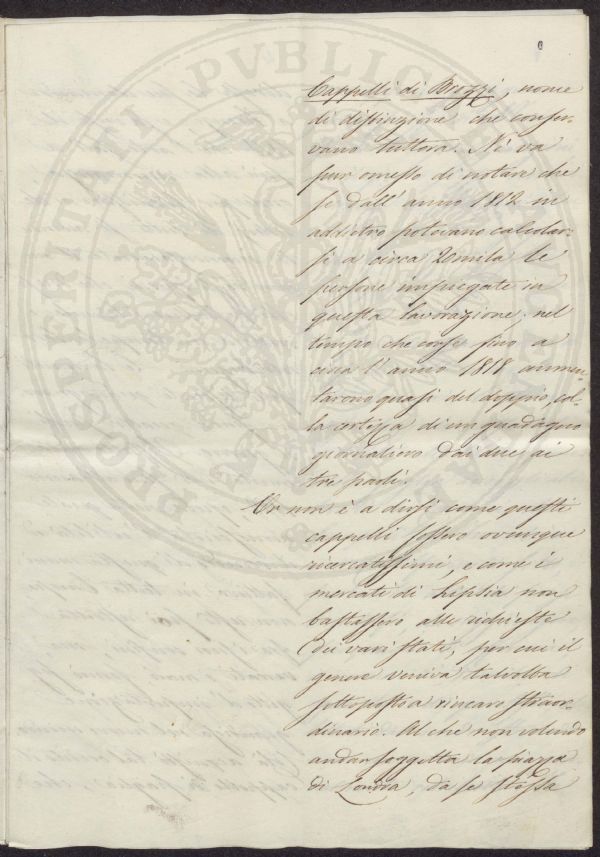 Cappelli di Brozzi, nome
di distinzione che conser-
vano tuttora. Nè va
pur omesso di notare che
se dall' anno 1812 in
addietro potevano calcolar-
si a circa 20mila le
persone impiegate in
questa lavorazione; nel
tempo che corse fino a
circa l' anno 1818 aumen-
tarono quasi del doppio, col-
la certezza di un guadagno
giornaliero dai due ai
tre paoli.
Or non è a dirsi come questi
cappelli fossero ovunque
ricercatissimi, e come i
mercati di Lipsia non
bastassero alle richieste
dei vari stati, per cui il
genere veniva talvolta
sottoposto a rincaro straor-
dinario. Al che non volendo
andar soggetta la piazza
di Londra, da se stessa
PROSPERITATI PVBLICAE